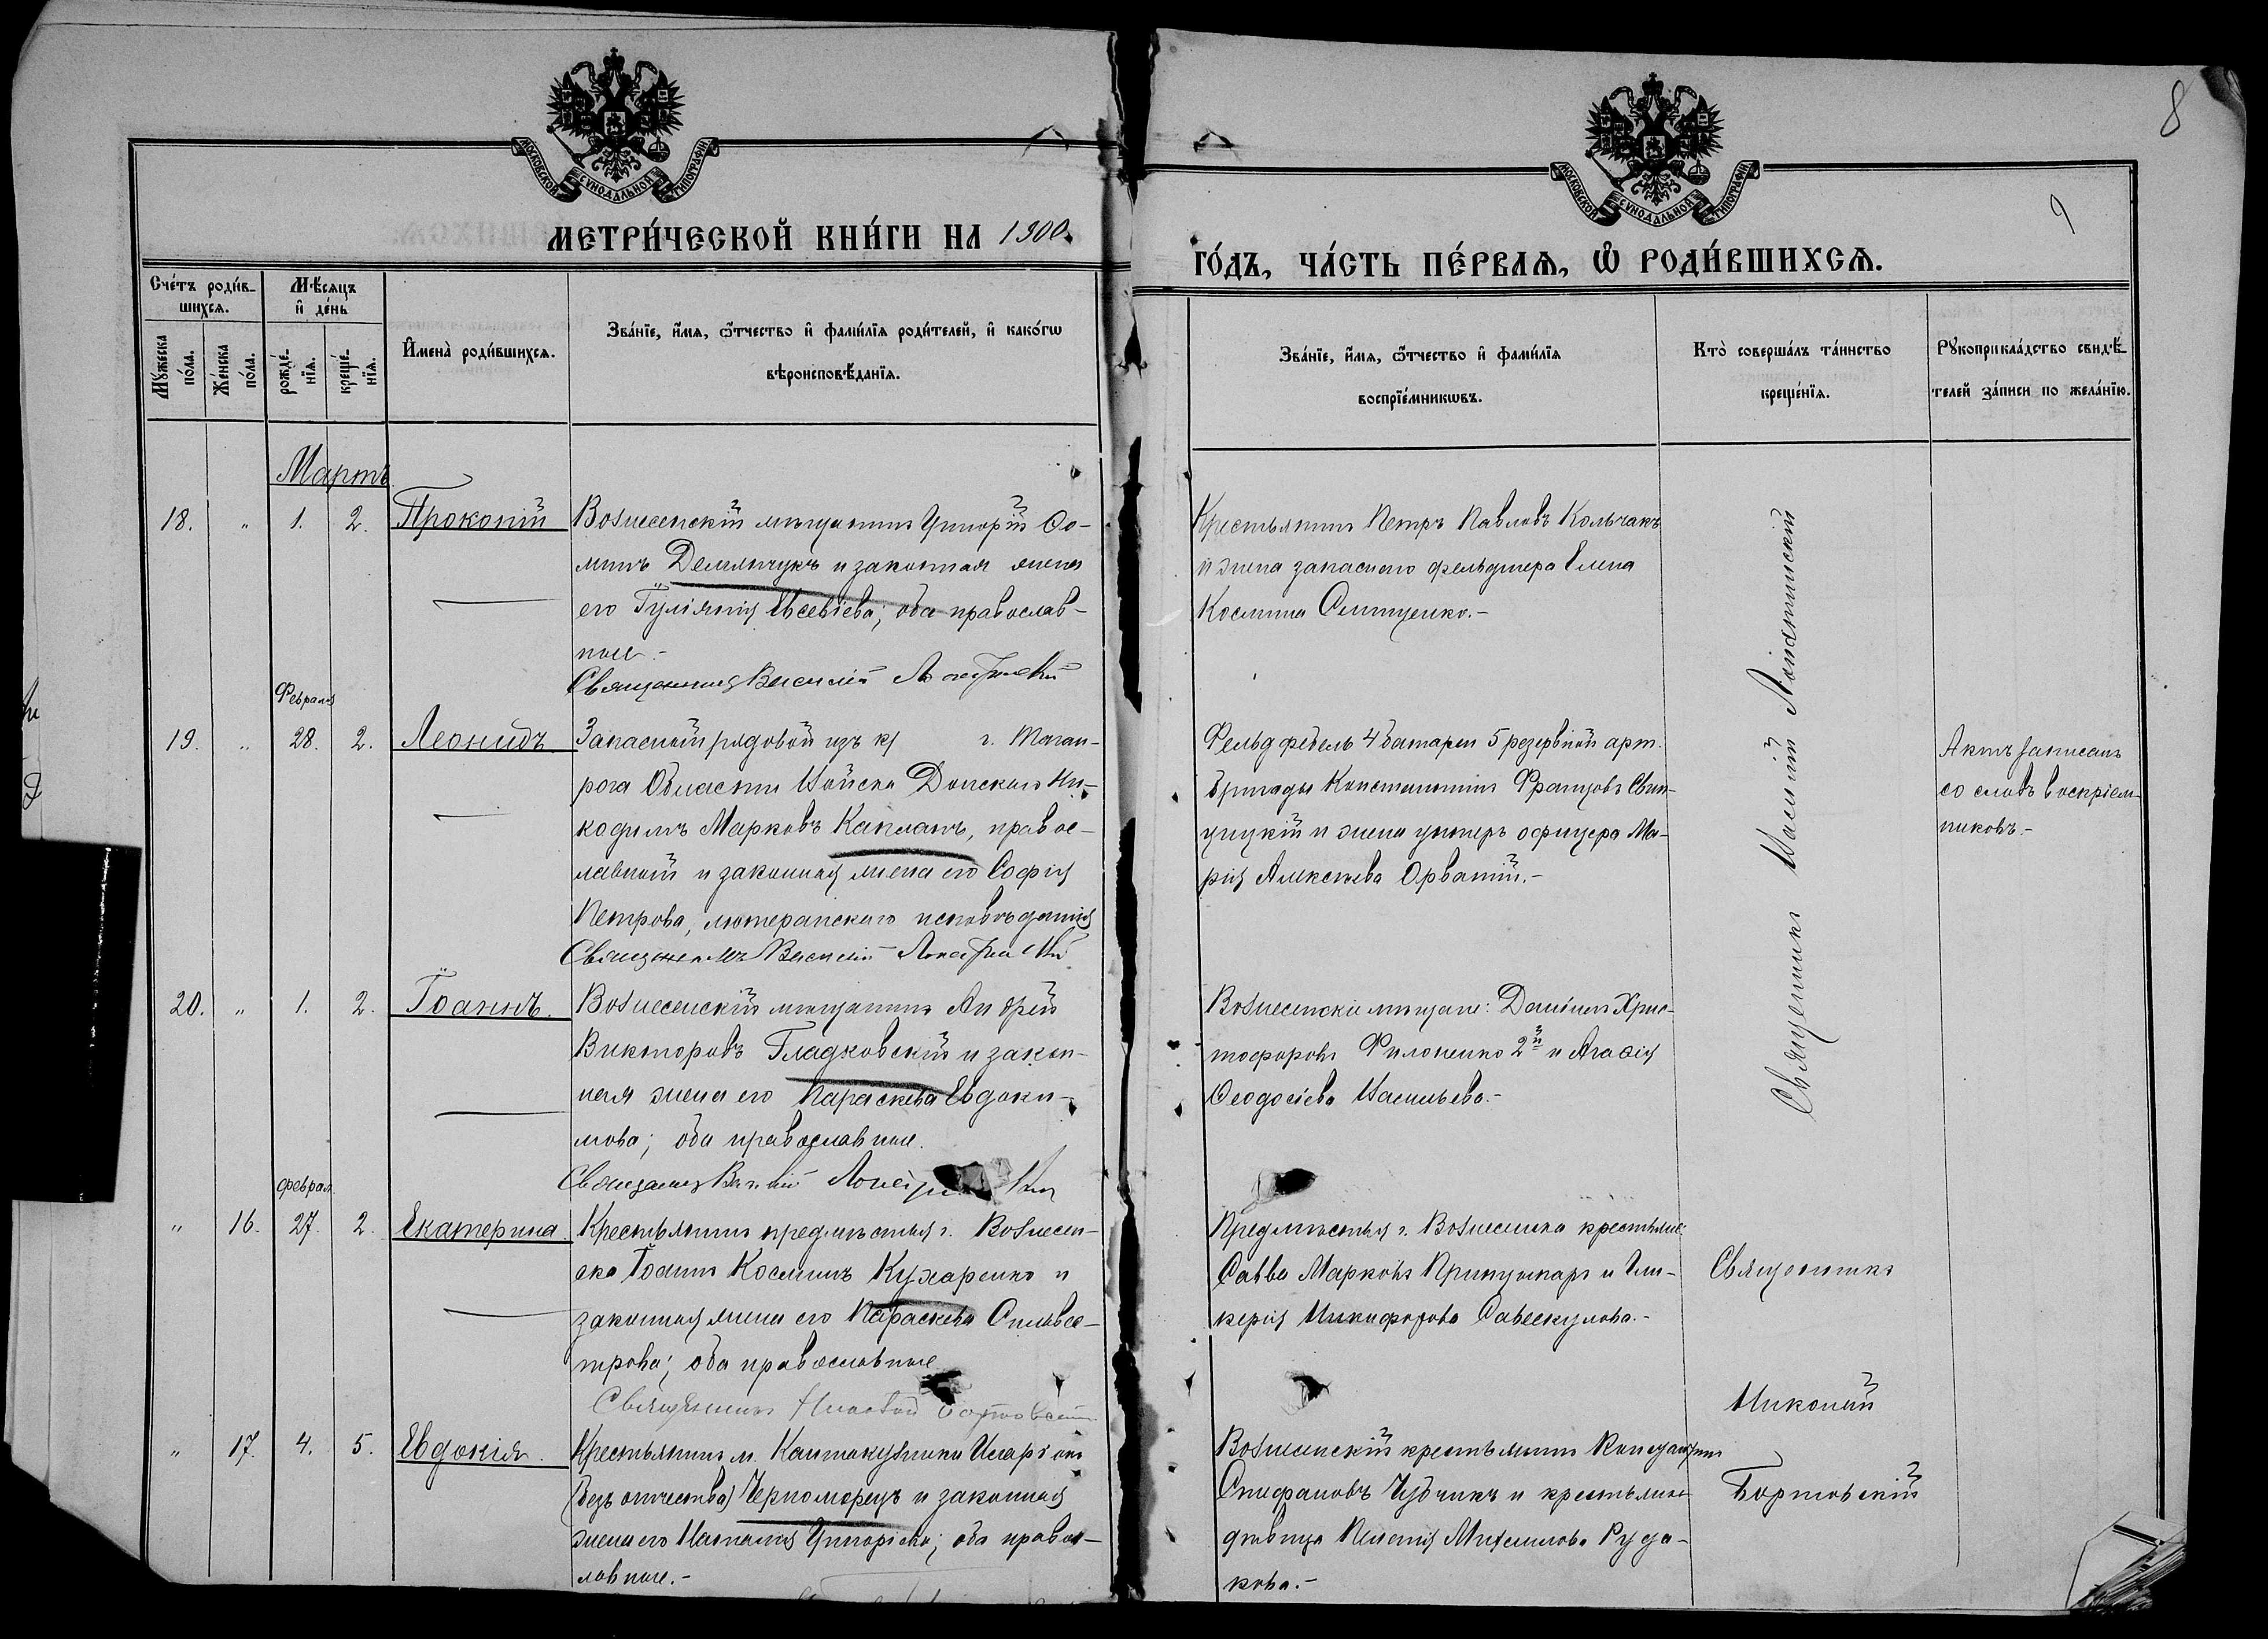 8
9
МОСКОВСКОЙ СѴНОДАЛЬНОЙ ТИПОГРАФІИ
МОСКОВСКОЙ СѴНОДАЛЬНОЙ ТИПОГРАФІИ
МЕТРИ́ЧЕСКОЙ КНИ́ГИ НА 1900.
ГО́ДЪ, ЧА́СТЬ ПЕ́РВАѦ, Ѡ҆ РОДИ́ВШИХСѦ.
Сче́тъ роди́в-
шихсѧ.
Мꙋ́жеска
по́ла.
Же́нска
по́ла.
Мѣ́сѧцъ
и҆ де́нь
рожде́-
нїѧ.
креще́-
нїѧ.
И҆мена̀ роди́вшихсѧ.
Зва́нїе, и҆́мѧ, ѻ҆́тчество и҆ фами́лїѧ роди́телей, и҆ како́гѡ
вѣроисповѣ́данїѧ.
Зва́нїе, и҆́мѧ, ѻ҆́тчество и҆ фами́лїѧ
воспрїе́мникѡвъ.
Кто̀ соверша́лъ та́инство
креще́нїѧ.
Рꙋкоприкла́дство свидѣ́-
телей за́писи по жела́нїю.
Мартъ
18. " 1. 2. Прокопій
Вознесенскій мѣщанинъ Григорій Ѳо-
минъ Демянчукъ и законная жена
его Іуліянія Евсевіева; оба православ-
ные.-
Священникъ Василій Лопатинскій
Крестьянинъ Петръ Павловъ Колчакъ
и жена запаснаго фельдшера Елена
Космина Онищенко.-
Февраля
19. " 28. 2. Леонидъ
Запасной рядовой изъ кр г. Таган-
рога Области Войска Донскаго Ни-
кодимъ Марковъ Капланъ, правос-
лавный и законная жена его Софія
Петрова, лютеранскаго исповѣданія
Священникъ Василій Лопатинскій
Фельдфебель 4 батареи 5 резервной арт.
бригады Константинъ Францовъ Свин-
цицкій и жена унтеръ офицера Ма-
рія Алексѣева Орватій.-
Актъ записанъ
со словъ воспріем-
никовъ.-
20. " 1. 2. Іоаннъ.
Вознесенскій мѣщанинъ Андрей
Викторовъ Гладковскій и закон-
ная жена его Параскева Евдоки-
мова; оба православные.
Священникъ Василій
Вознесенскіе мѣщане: Даніилъ Хрис-
тофоровъ Филоненко 2й и Агаѳія
Ѳеодосіева Васильева.-
Священникъ Василій Лопатинскій
Февраля
" 16. 27. 2. Екатерина
Крестьянинъ предмѣстья г. Вознесен-
ска Іоаннъ Косминъ Кухаренко и
законная жена его Параскева Сильвес-
трова; оба православные
Священникъ Николай Бортовскій
Предмѣстья г. Вознесенска крестьяне:
Савва Марковъ Припускаръ и Гли-
керія Никифорова Савескулова.-
Священникъ
Николай
Бортовскій
" 17. 4. 5. Евдокія.
Крестьянинъ м. Кантакузинки Иларіонъ
(безъ отчества) Черноморецъ и законная
жена его Наталія Григоріева; оба правос-
лавные.-
Вознесенскій крестьянинъ Константинъ
Стефановъ Чубчикъ и крестьянка
дѣвица Пелагія Михаилова Руда-
кова.-